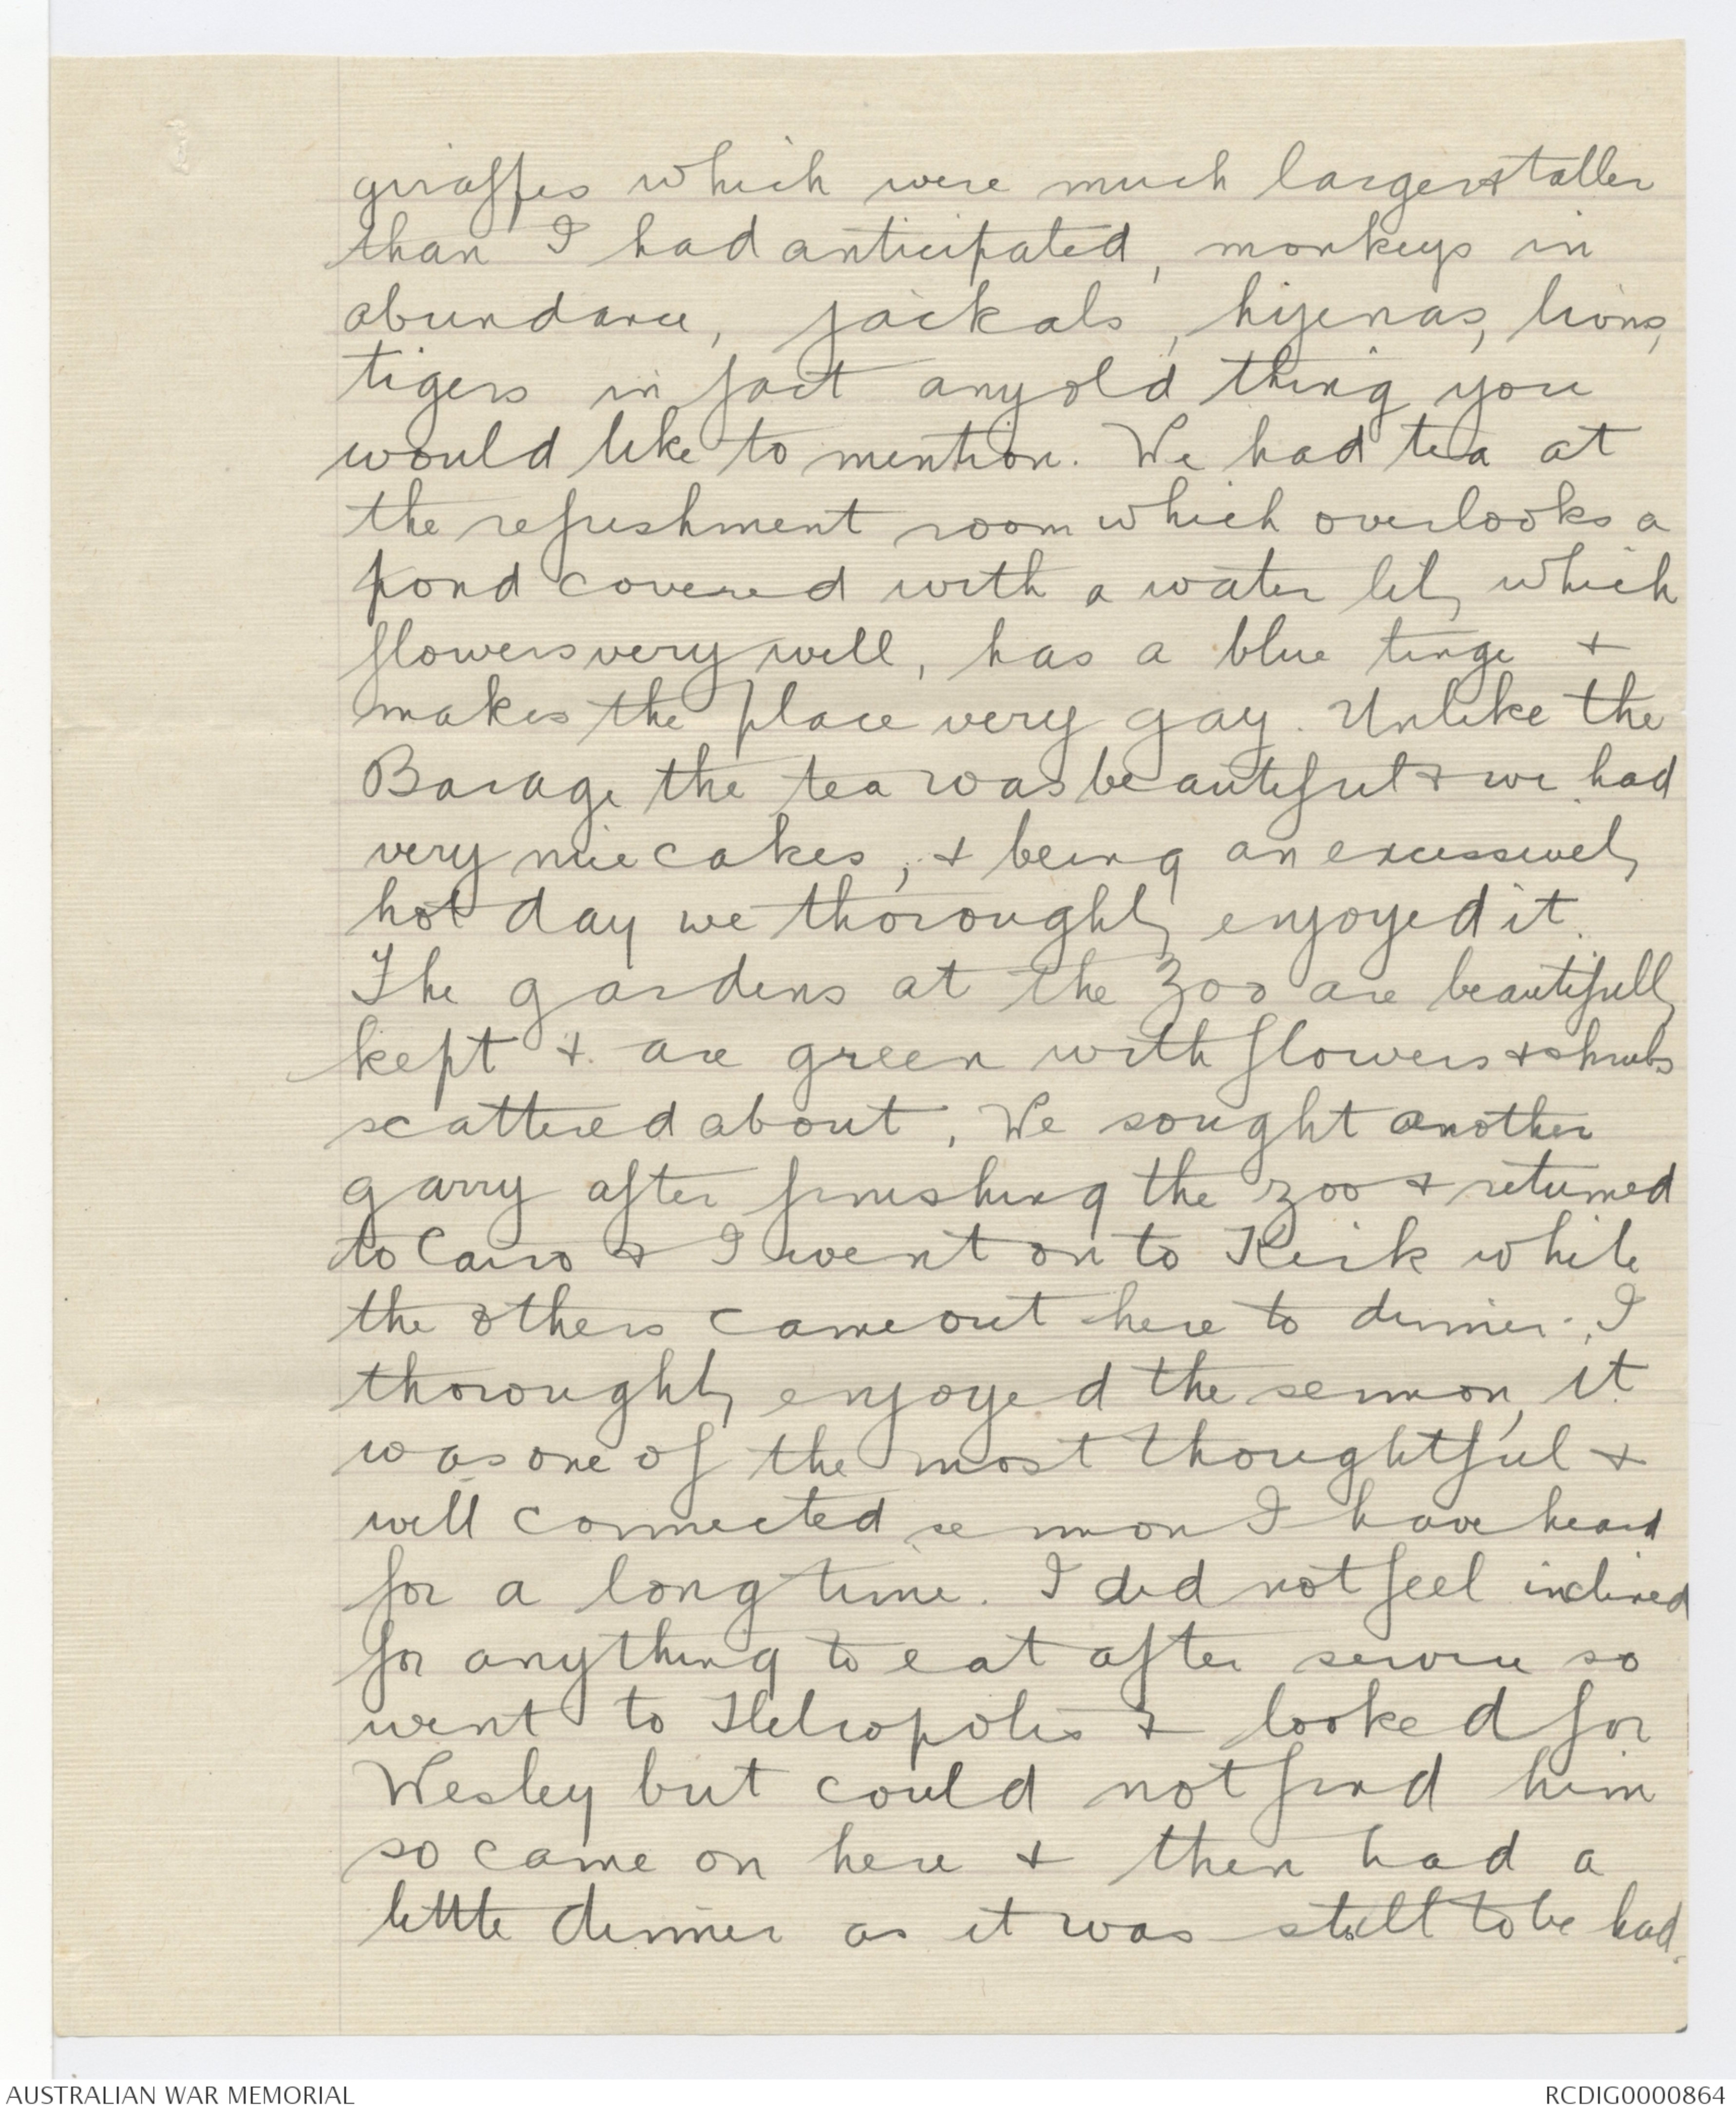 giraffes which were much larger & taller
than I had anticipated, monkeys in
abundance, jackals, hyenas, lions,
tigers in fact any old thing you
would like to mention. We had tea at
the refreshment room which overlooks a
pond covered with a water lily which
flowers very well, has a blue tinge &
makes the place very gay. Unlike the
Barage the tea was beautiful & we had
very nice cakes, & being an excessively
hot day we thoroughly enjoyed it.
The gardens at the Zoo are beautifully
kept & are green with flowers & shrubs
scattered about. We sought another
garry after finishing the zoo & returned
to Cairo & I went on to Kirk while
the others came out here to dinner. I
thoroughly enjoyed the sermon, it
was one of the most thoughtful &
well connected sermon I have heard
for a long time. I did not feel inclined
for anything to eat after service so
went to Heliopolis & looked for
Wesley but could not find him
so came on here & then had a
little dinner as it was still to be had.
AUSTRALIAN WAR MEMORIAL
RCDIG0000864